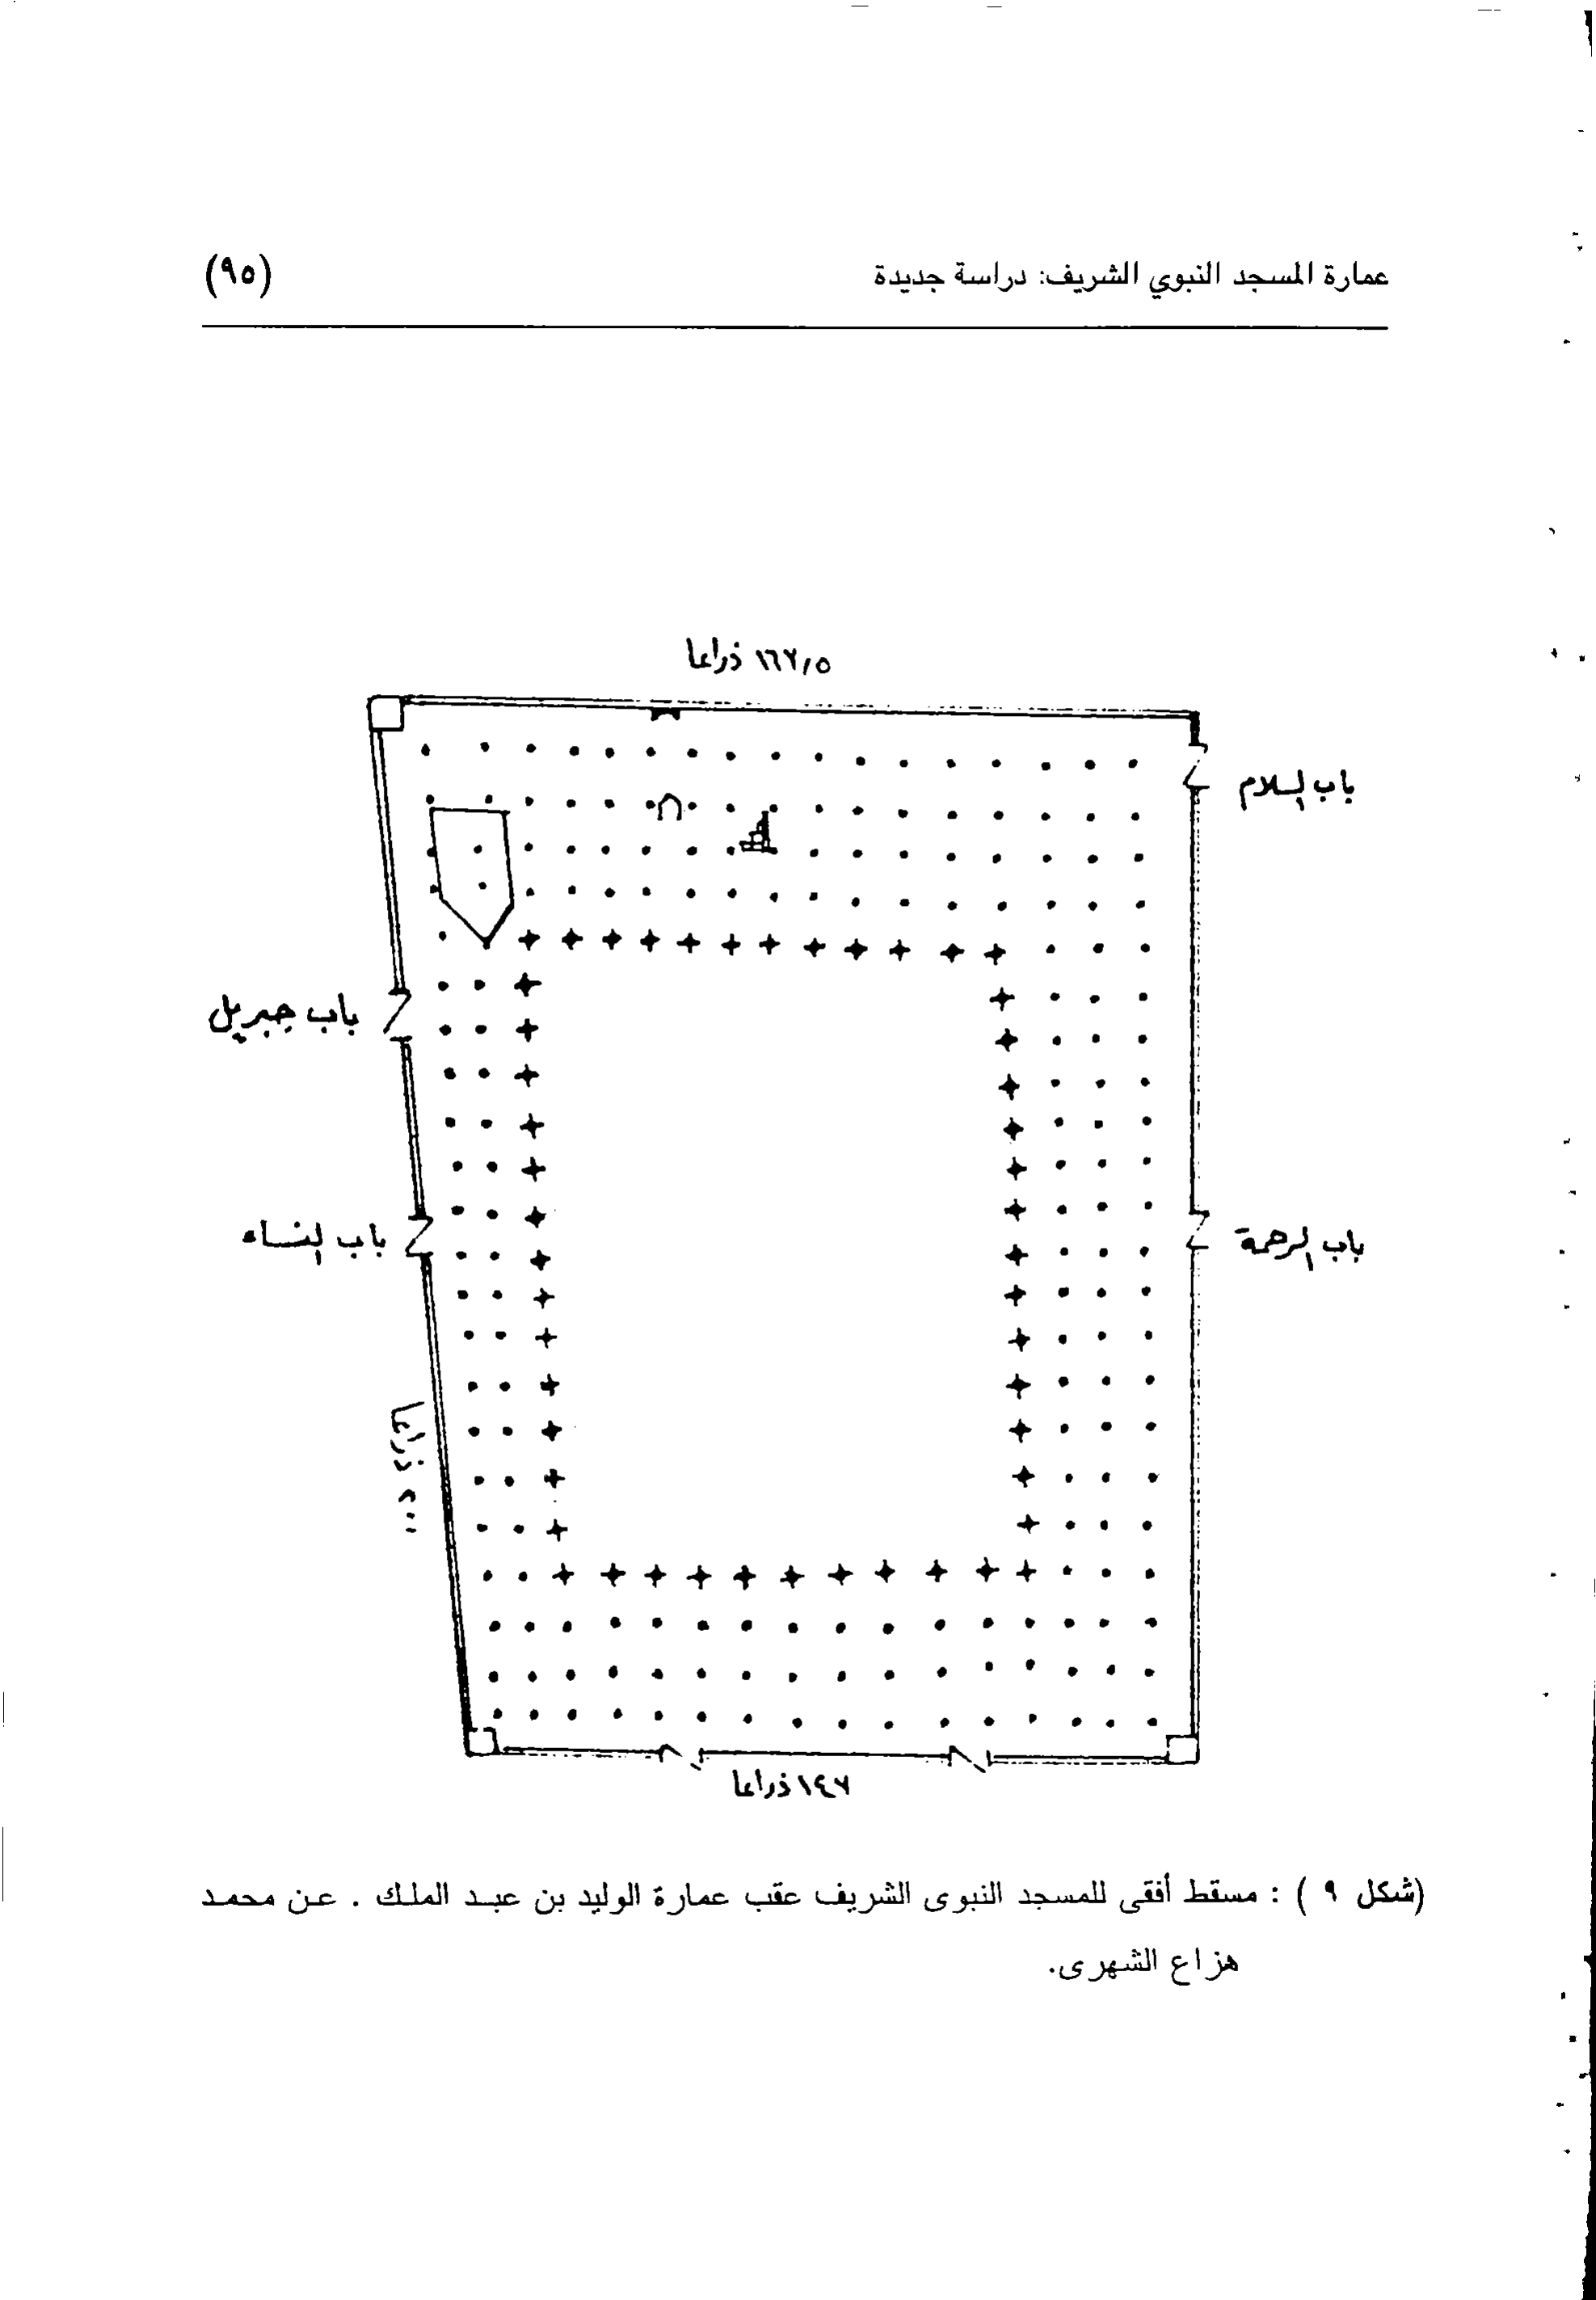 عمارة المسجد النبوي الشريف: دراسة جديدة
(٩٥)
١٦٧٫٥ ذراعا
باب السلام
باب جبريل
باب النساء
باب الرحمة
٢٠٠ ذراعا
١٤٧ ذراعا
(شكل ٩ ) : مسقط أفقى للمسجد النبوى الشريف عقب عمارة الوليد بن عبد الملك . عن محمد
هزاع الشهرى.